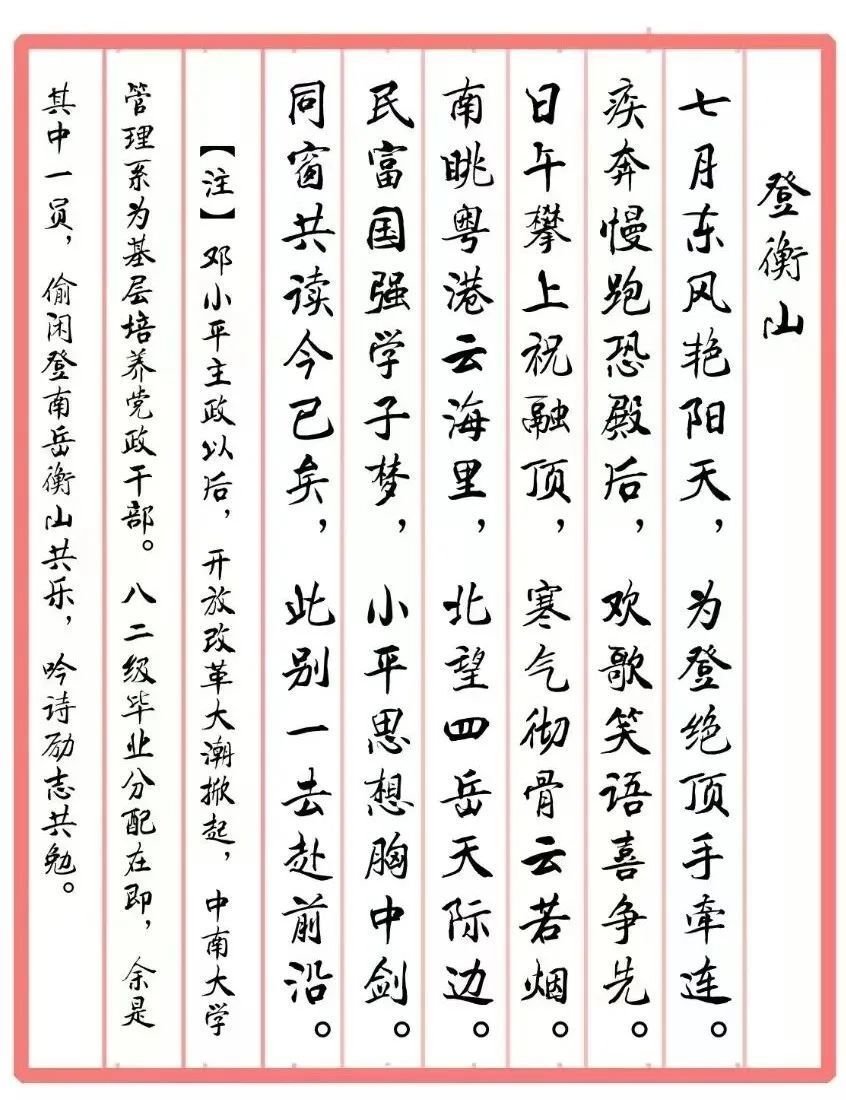 登衡山
七月东风艳阳天，为登绝顶手牵连。
疾奔慢跑恐殿后，欢歌笑语喜争先。
日午攀上祝融顶，寒气彻骨云若烟。
南眺粤港云海里，北望四岳天际边。
民富国强学子梦，小平思想胸中剑。
同窗共读今已矣，此别一去赴前沿。
【注】邓小平主政以后，开放改革大潮掀起，中南大学
管理系为基层培养党政干部。八二级毕业分配在即，余是
其中一员，偷闲登南岳衡山共乐，吟诗励志共勉。